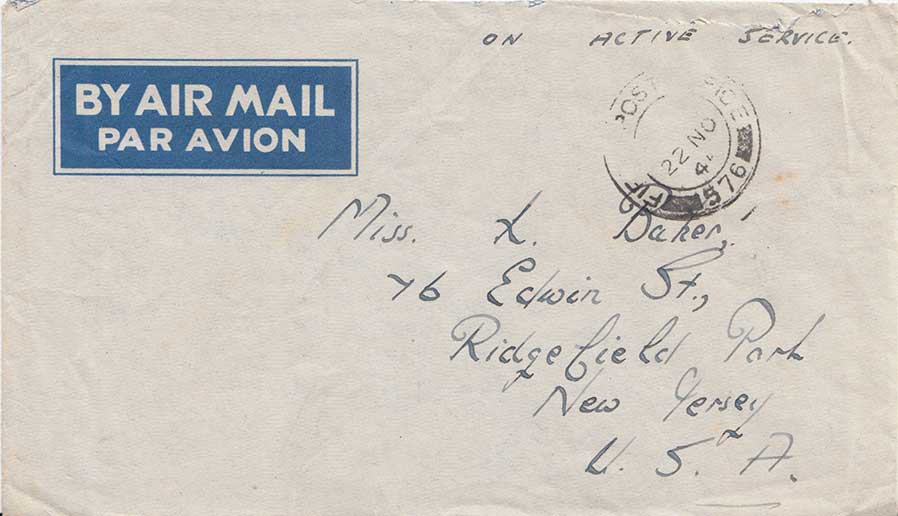 ON ACTIVE SERVICE.
BY AIR MAIL
PAR AVION
POST
22 NO
576
Miss. K. Baker,
76 Edwin St.,
Ridgefield Park
New Jersey
U. S. A.